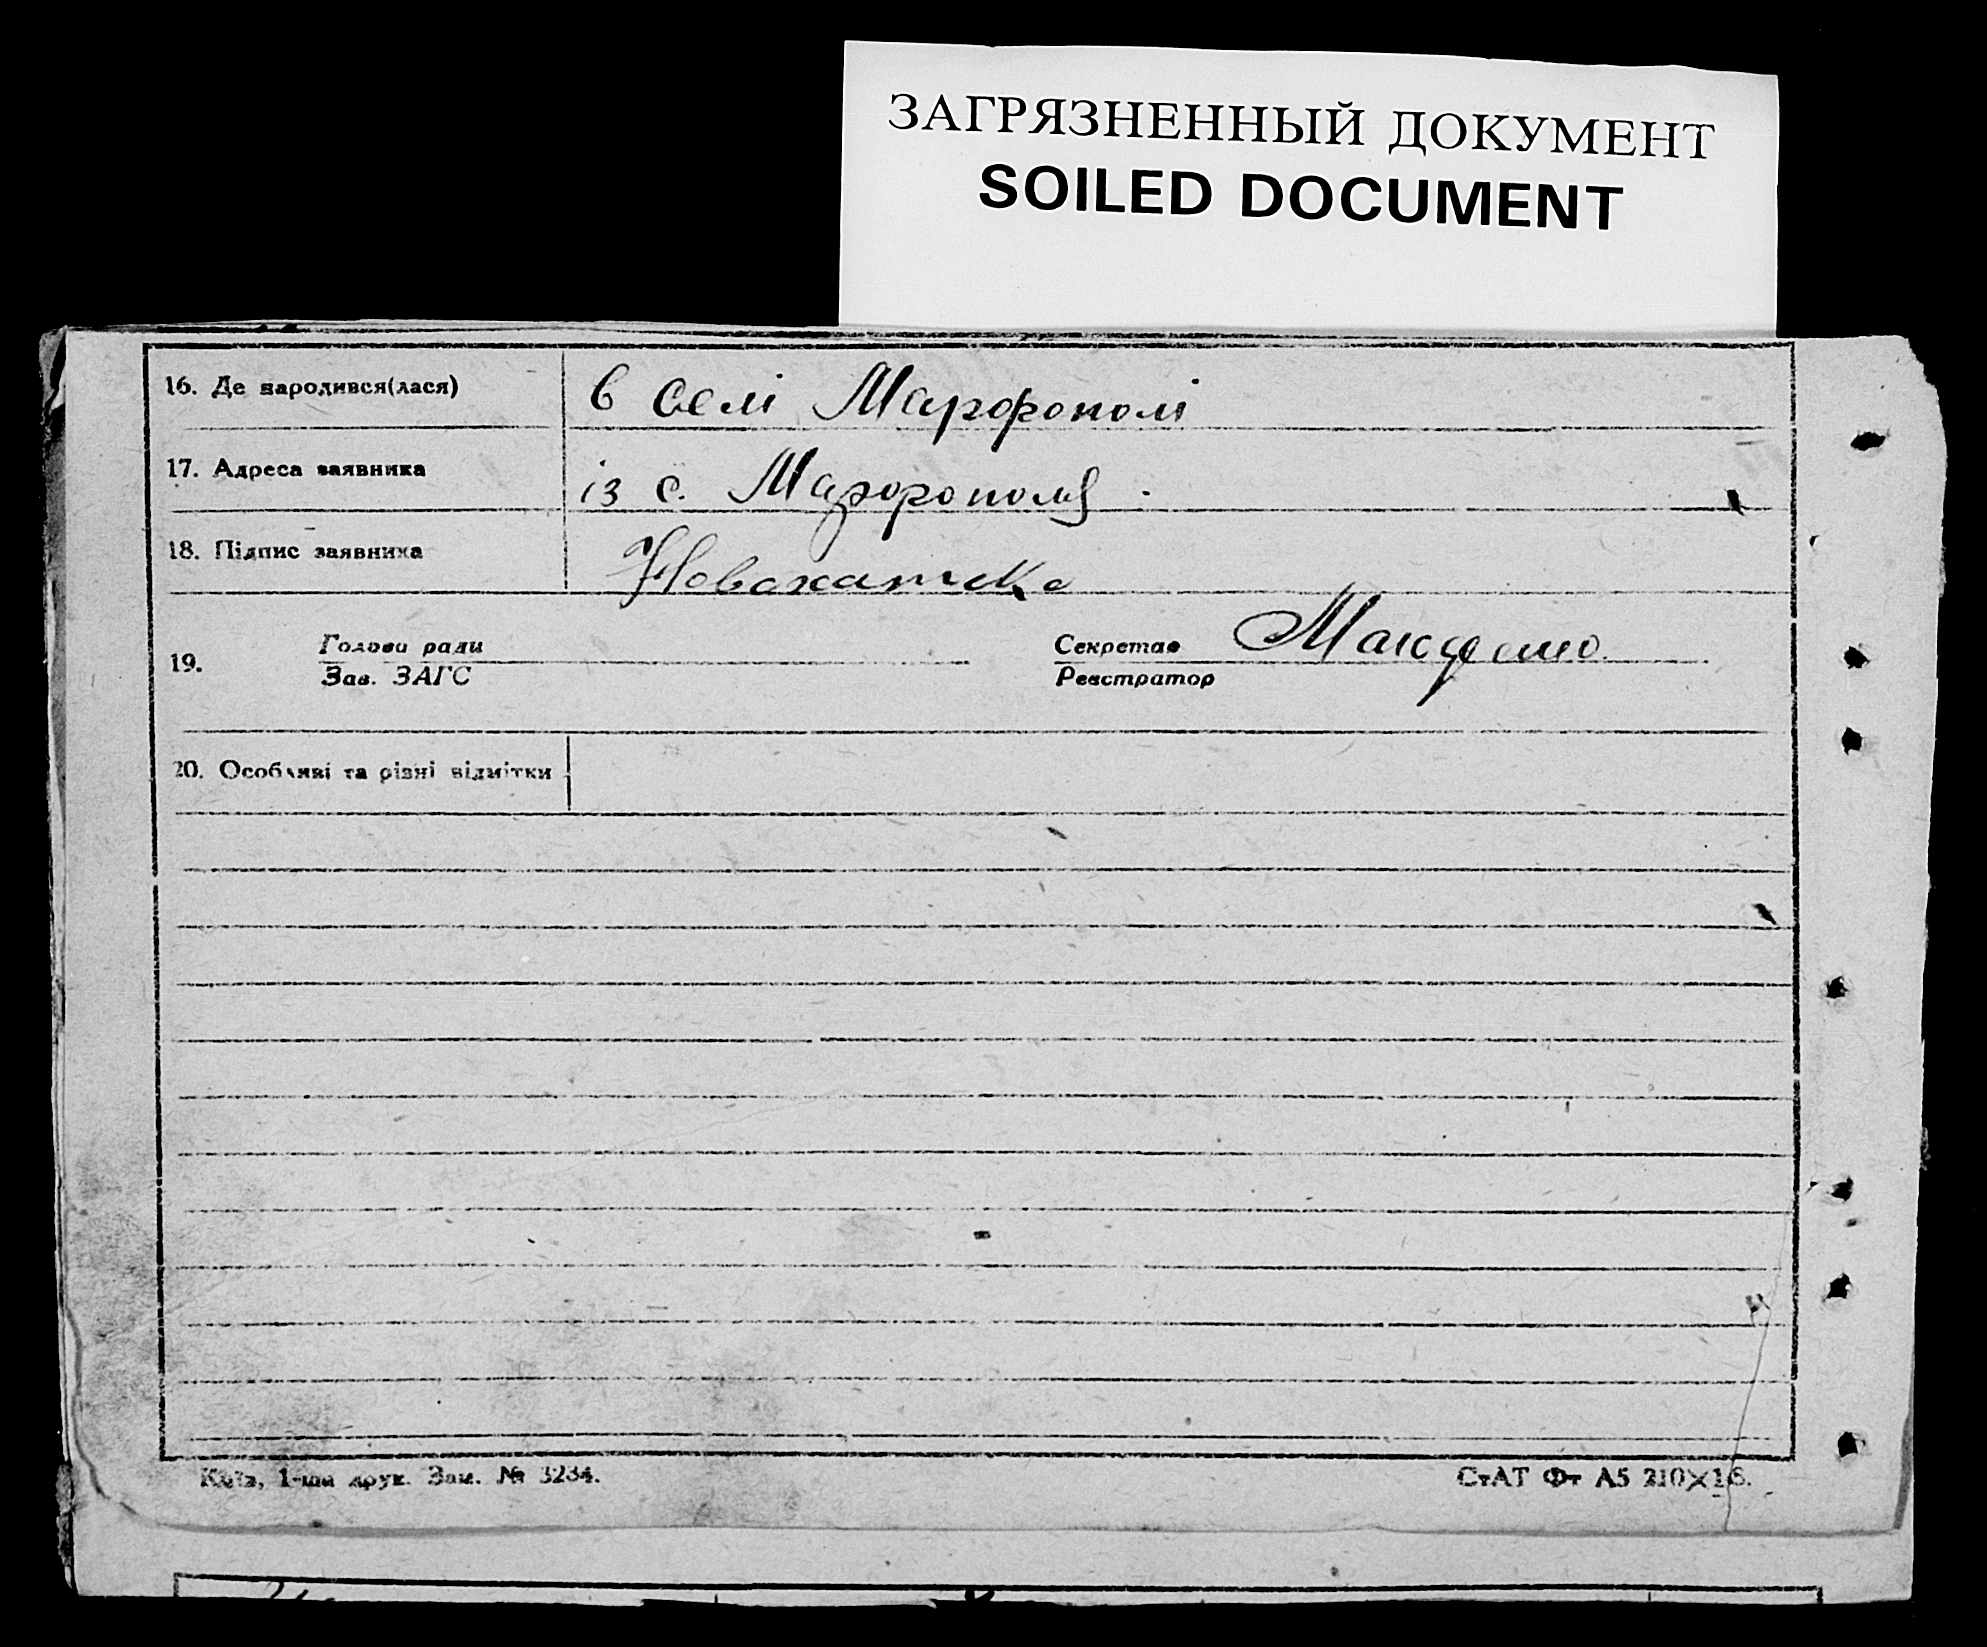 ЗАГРЯЗНЕННЫЙ ДОКУМЕНТ
SOILED DOCUMENT
16. Де народився(лася) в селі Марфополі
17. Адреса заявника із с. Марфополя
18. Підпис заявника
19. Голова ради Секретар
Зав. ЗАГС Реєстратор
20. Особливі та різні відмітки
Київ, 1-ша друк. Зам. № 3234.
СтАТ Фт А5 210×148.